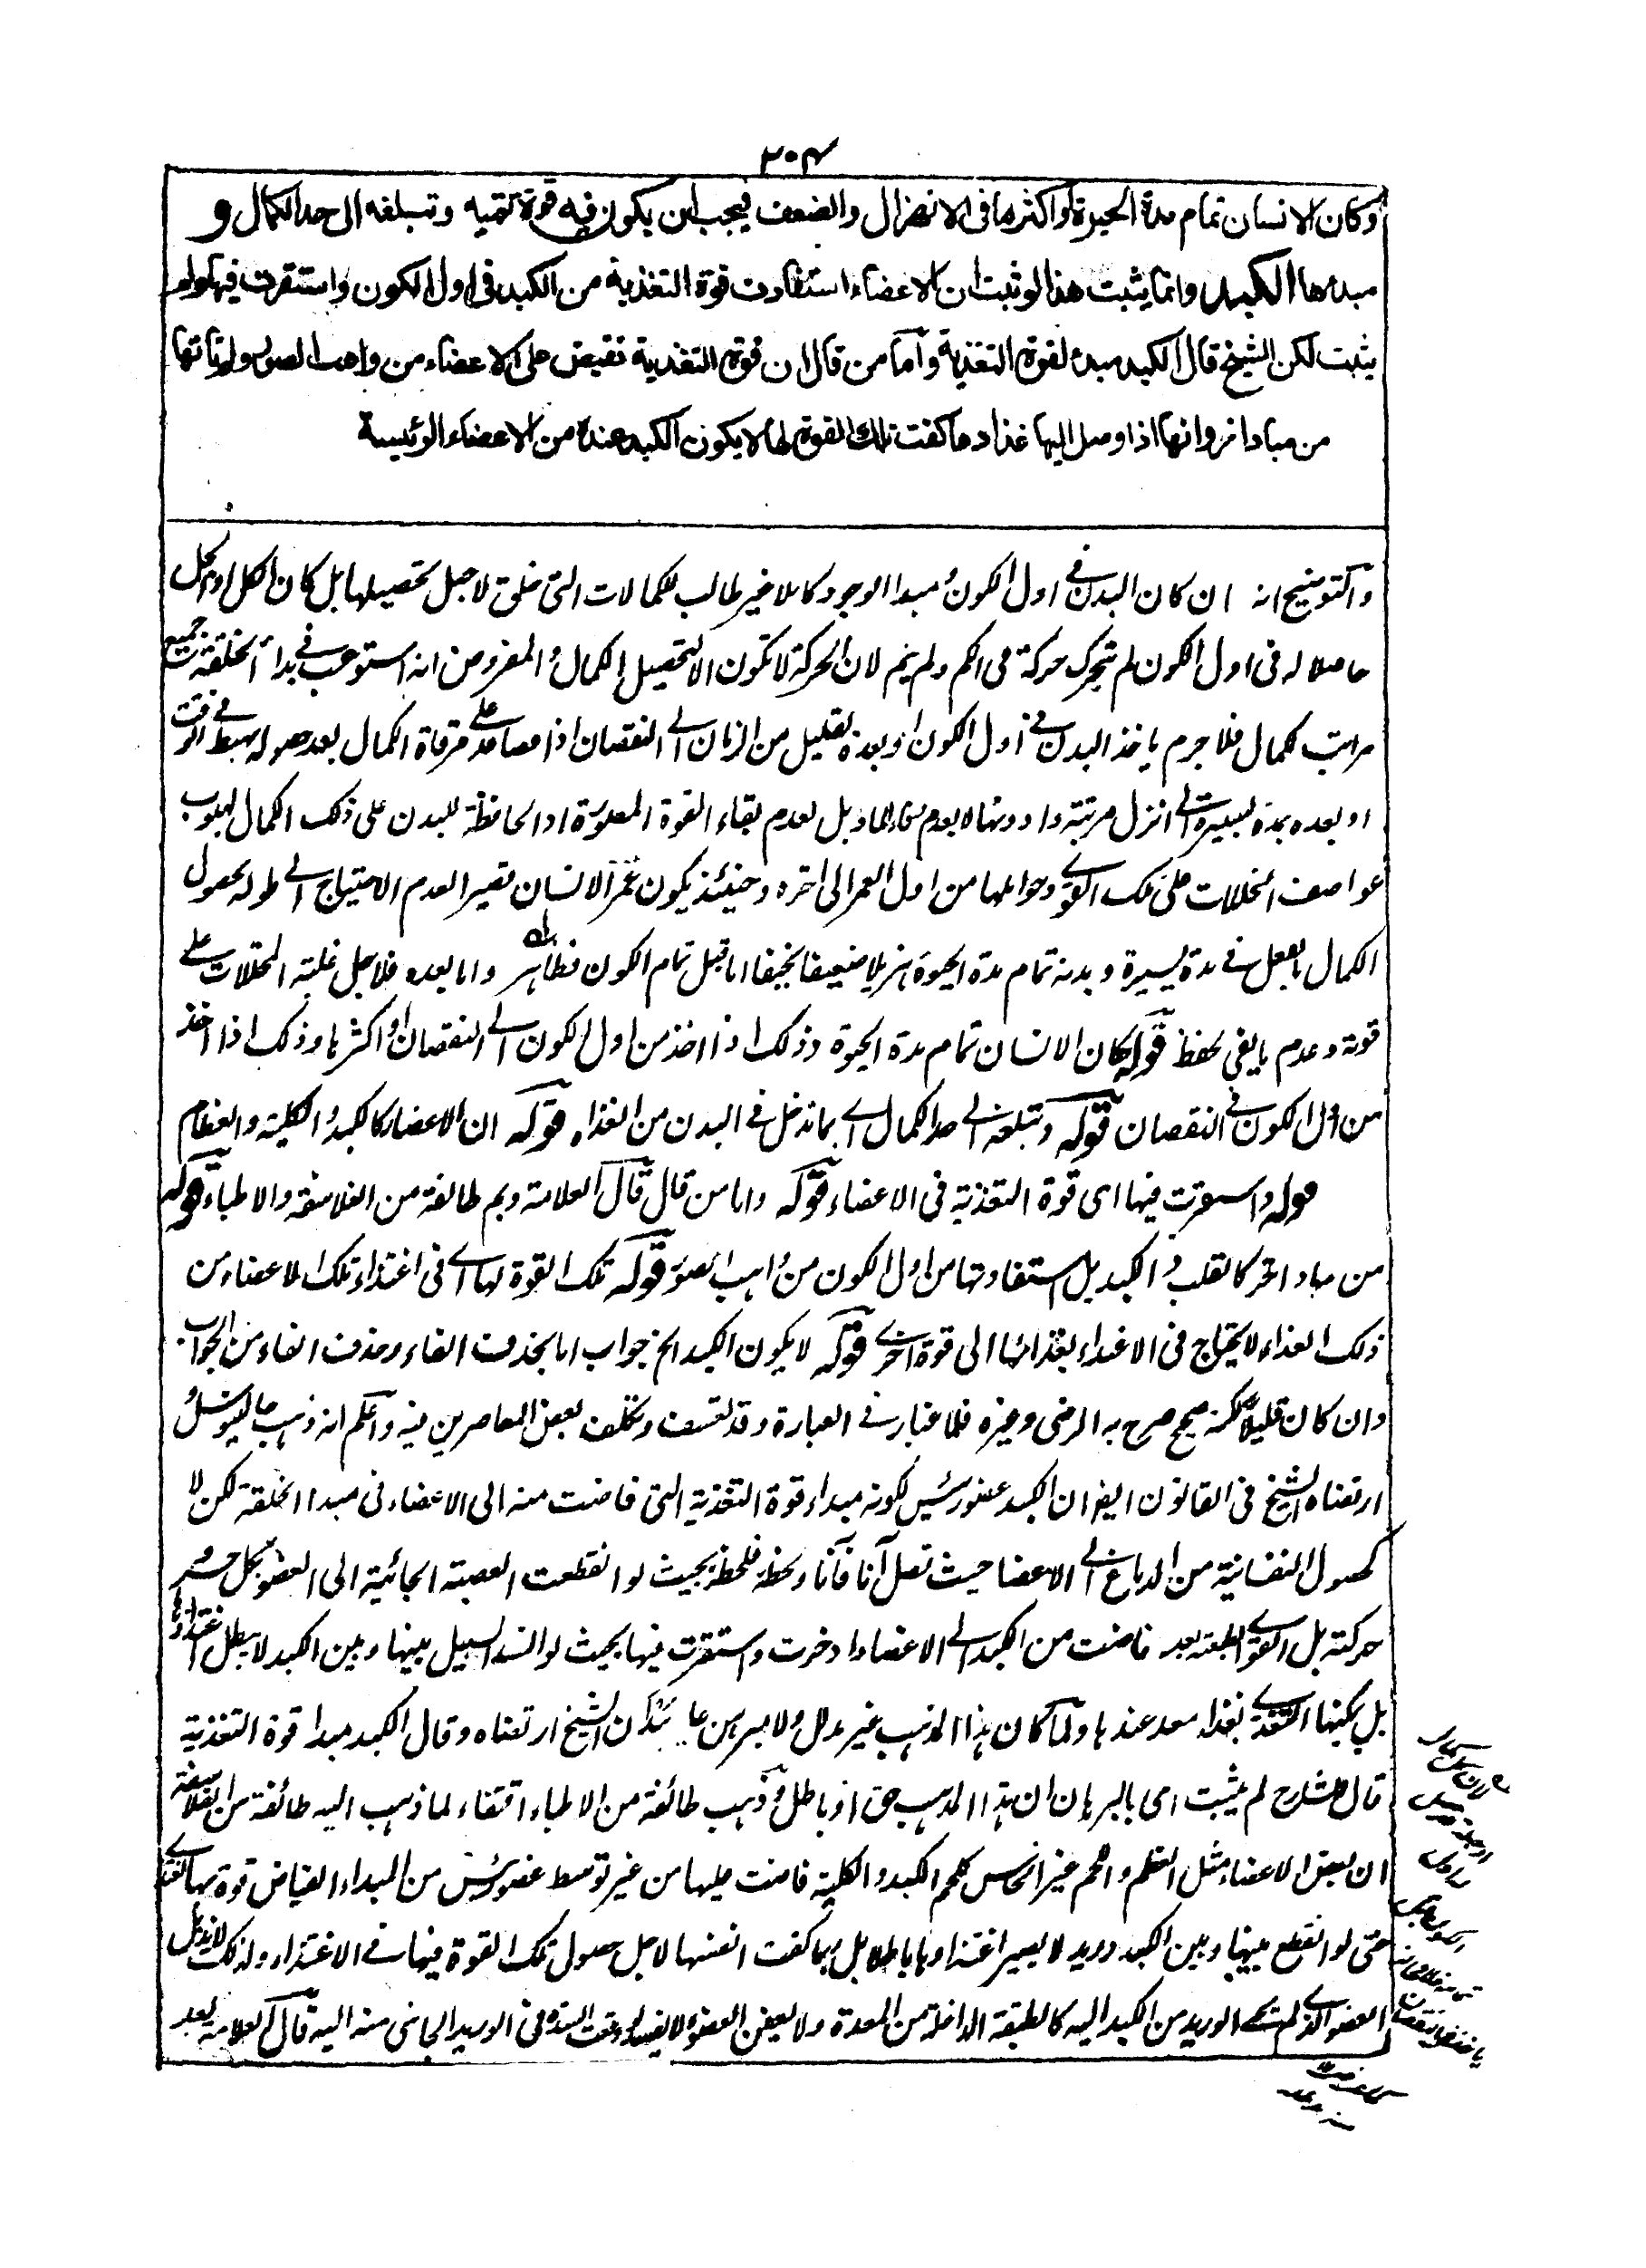 ٣٠٤
وكان الانسان تمام مدة الحيوة او اكثرها فى الانهزال والضعف فيجب ان يكون فيه قوة تنميه وتبلغه الى حد الكمال و
مبدءها الكبد وانما يثبت هذا لو ثبت ان الاعضاء استفادت قوة التغذية من الكبد فى اول الكون واستقرت فيها ولم
يثبت لكن الشيخ قال الكبد مبدء لقوة التغذية وأما من قال ان قوة التغذية تفيض على الاعضاء من واهب الصور ولم تاتها
من مباد اخر وانها اذا وصل اليها غذاءها كفت تلك القوة لها لا يكون الكبد عنده من الاعضاء الرئيسة
والتوضيح انه ان كان البدن فى اول الكون مبدا الوجود كاملا غير طالب للكمالات التى خلق لاجل تحصيلها بل كان الكل او الجل
حاصلا له فى اول الكون لم يتحرك حركة فى الكم ولم ينم لان الحركة لا تكون الا لتحصيل الكمال والمفروض انه استوعب فى بدأ الخلقة جميع
مراتب الكمال فلا جرم ياخذ البدن فى اول الكون او بعده بقليل من الزمان الى النقصان اذا مصاعد على مرقاة الكمال بعد حصوله يهبط فى الوقت
او بعده بمدة يسيرة الى انزل مرتبة وادونها لا بعدم بقاء المادة بل لعدم بقاء القوة المصورة او الحافظة للبدن على ذلك الكمال لهبوب
عواصف المحللات على تلك القوى وحواملها من اول العمر الى اخره وحينئذ يكون عمر الانسان قصيرا لعدم الاحتياج الى طوله لحصول
الكمال بالفعل فى مدة يسيرة وبدنه تمام مدة الحيوة هزيلا ضعيفا نحيفا اما قبل تمام الكون فظاهر واما بعده فلاجل غلبة المحللات على
قوته وعدم ما يفى بحفظ قوله كان الانسان تمام مدة الحيوة وذلك اذا اخذ من اول الكون الى النقصان او اكثرها وذلك اذا اخذ
من اول الكون فى النقصان قوله وتبلغه الى حد الكمال اى بما تدخل فى البدن من الغذاء قوله ان الاعضاء كالكبد والكلية والعظام
قوله واستقرت فيها اى قوة التغذية فى الاعضاء قوله واما من قال قال العلامة وهم طائفة من الفلاسفة والاطباء قوله
من مباد اخر كالقلب والكبد بل استفادتها من اول الكون من واهب الصور قوله تلك القوة لها اى فى اغتذاء تلك الاعضاء من
ذلك الغذاء لا يحتاج فى الاغتذاء بغذائها الى قوة اخرى قوله لا يكون الكبد الخ جواب اما بحذف الفاء وحذف الفاء من الجواب
وان كان قليلا لكنه صحيح صرح به الرضى وغيره فلا غبار فى العبارة وقد تعسف وتكلف بعض المعاصرين فيه واعلم انه ذهب جالينوس و
ارتضاه الشيخ فى القانون ايضا ان الكبد عضو رئيس لكونه مبداء قوة التغذية التى فاضت منه الى الاعضاء فى مبدا الخلقة لكن لا
كحصول النفسانية من الدماغ الى الاعضا حيث تصل آنا فآنا ولحظة فلحظة بحيث لو انقطعت العصبة الجائية الى العضو بطل حسه و
حركته بل القوى الطبعية بعد فاضت من الكبد الى الاعضاء ادخرت واستقرت فيها بحيث لو انسد السبيل بينها وبين الكبد لا يبطل اغتذاؤها
بل يكفيها التغذى بغذاء معد عندها ولما كان هذا المذهب غير مدلل ولا مبرهن كان الشيخ ارتضاه وقال الكبد مبدا قوة التغذية
قال الشارح لم يثبت اى بالبرهان ان هذا المذهب حق او باطل وذهب طائفة من الاطباء اقتفاء لما ذهب اليه طائفة من الفلاسفة
ان بعض الاعضاء مثل العظم واللحم غير الحاس كلحم الكبد والكلية فاضت عليها من غير توسط عضو رئيس من المبداء الفياض قوة بها تغتذى
حتى لو انقطع بينها وبين الكبد وريد لا يصير اغتذاوها باطلا بل ربما كفت انفسها لاجل حصول تلك القوة فيها فى الاغتذاء ولذلك لا يذبل
العضو الذى لم يجئ الوريد من الكبد اليه كالطبقة الداخلة من المعدة ولا بعض العضو لا يفسد وقت السدة فى الوريد الجائى منه اليه قال العلامة بعد